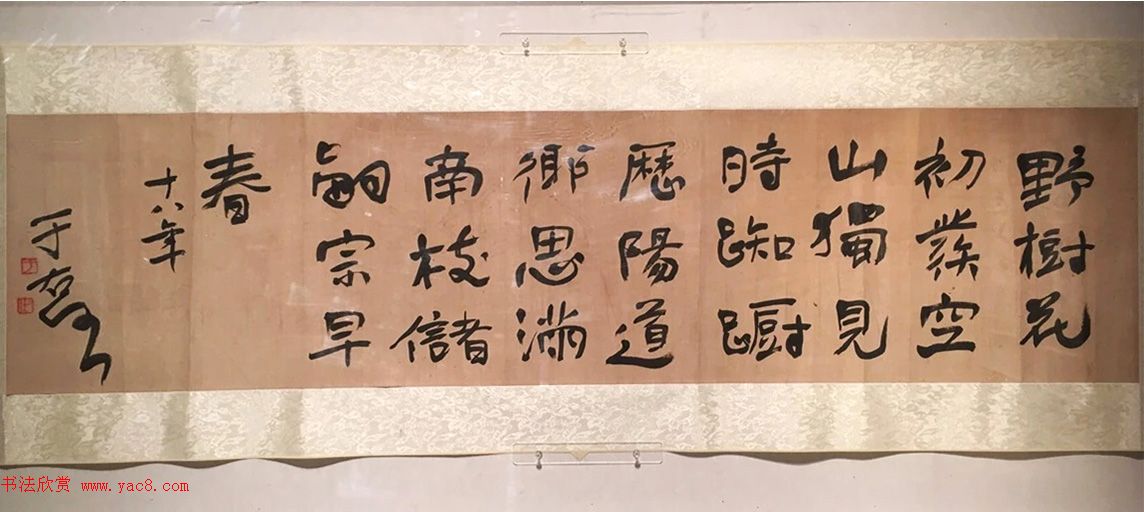 野樹花
初發空
山獨見
時踟蹰
歷陽道
鄉思滿
南枝儲
嗣宗早
春
十八年
于右任
书法欣赏 www.yac8.com